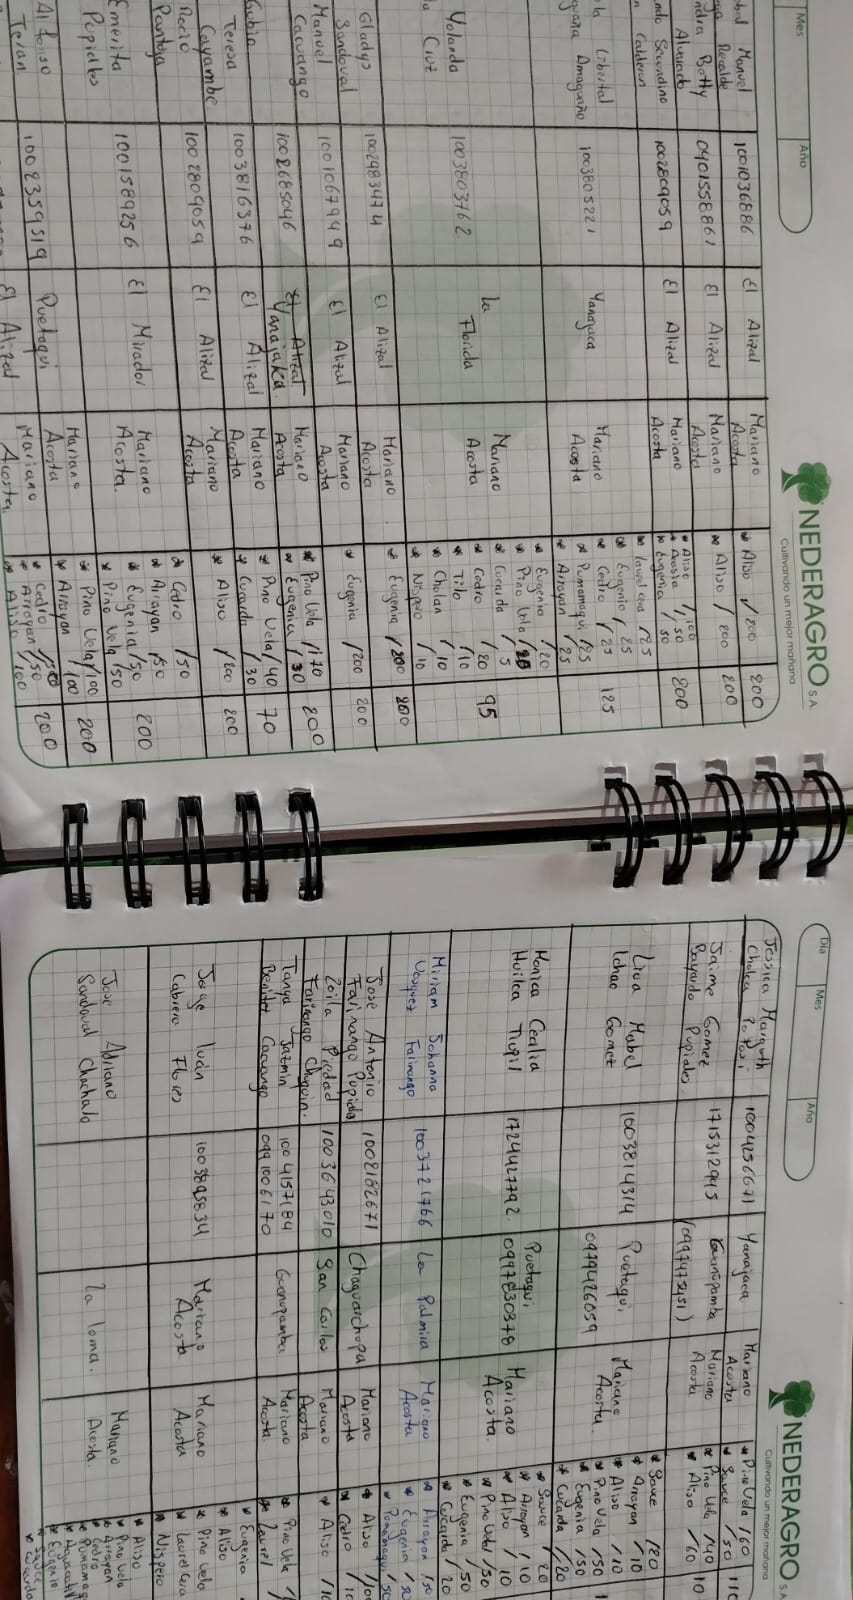 Mes
Año
NEDERAGRO S.A.
Cultivando un mejor mañana
Manuel 1001036886 El Alizal Mariano Acosta * Aliso / 200 200
Recalde
Betty 0401558861 El Alizal Mariano Acosta * Aliso / 200 200
Alvarado
Secundino 1002809059 El Alizal Mariano Acosta * Aliso / 100 200
Calderon * Acacia / 50
* Eugenia / 50
la Libertad 1003805221 Yanajaca Mariano Acosta * Laurel cera / 25 125
Amaguaña * Eugenio / 25
* Cedro / 25
* Pumamaqui / 25
* Arrayan / 25
Yolanda 1003803762 La Florida Mariano Acosta * Eugenia / 20 95
Cruz * Pino Vela / 20
* Cucarda / 5
* Cedro / 20
* Tilo / 10
* Cholan / 10
* Nispero / 10
Gladys 1002983474 El Alizal Mariano Acosta * Eugenia / 200 200
Sandoval
Manuel 1001067949 El Alizal Mariano Acosta * Eugenia / 200 200
Cacuango
1002685046 El Alizal Yanajaka Mariano Acosta * Pino Vela / 170 200
* Eugenia / 30
Teresa 1003816376 El Alizal Mariano Acosta * Pino Vela / 40 70
Cayambe * Cucarda / 30
Rocio 1002809059 El Alizal Mariano Acosta * Aliso / 200 200
Pantoja
Emerita 1001589256 El Mirador Mariano Acosta * Cedro / 50 200
Pupiales * Arrayan / 50
* Eugenia / 50
* Pino Vela / 50
Alfonso 1002359519 Puetaqui Mariano Acosta * Pino Vela / 100 200
Teran * Arrayan / 100
El Alizal Mariano Acosta * Cedro / 50 200
* Arrayan / 50
* Aliso / 100
Dia
Mes
Año
NEDERAGRO S.A.
Cultivando un mejor mañana
Jessica Margoth 1004256671 Yanajaca Mariano Acosta * Pino Vela / 60
Potosi * Sauce / 50
Jaime Gomez 1715312945 Guanupamba Mariano Acosta * Pino Vela / 40
Bayardo Pupiales (0997475451) * Aliso / 60
Livia Mabel 1003814314 Puetaqui Mariano Acosta * Sauce / 20
Ichao Gomez 0979426059 * Arrayan / 10
* Aliso / 10
* Pino Vela / 50
* Eugenia / 50
* Cucarda / 20
Monica Cecilia 1724427792 Puetaqui Mariano Acosta * Sauce / 20
Huilca 0997830378 * Arrayan / 10
* Aliso / 10
* Pino Vela / 50
* Eugenia / 50
* Cucarda / 20
Miriam Johanna 1003721766 La Palmira Mariano Acosta * Arrayan / 50
Vasquez Farinango * Eugenia / 50
* Pumamaqui / 50
Jose Antonio 1002182671 Chaguarchupa Mariano Acosta * Aliso
Farinango Pupiales * Cedro
Zoila Piedad 1003643010 San Carlos Mariano Acosta * Aliso
Farinango Chuquin
Tanya Jazmin 1004157184 Guanupamba Mariano Acosta * Pino Vela
Benitez Cacuango 0991006170 * Laurel
Jorge Iván 1003895834 Mariano Acosta Mariano Acosta * Eugenia
Cabrera Flores * Aliso
* Pino Vela
* Laurel Cera
* Nispero
Jose Adriano La loma. Mariano Acosta. * Aliso
Sandoval Chachalo * Pino Vela
* Arrayan
* Cedro
* Pumamaq
* Eugenio
* Sauce
* Cucarda